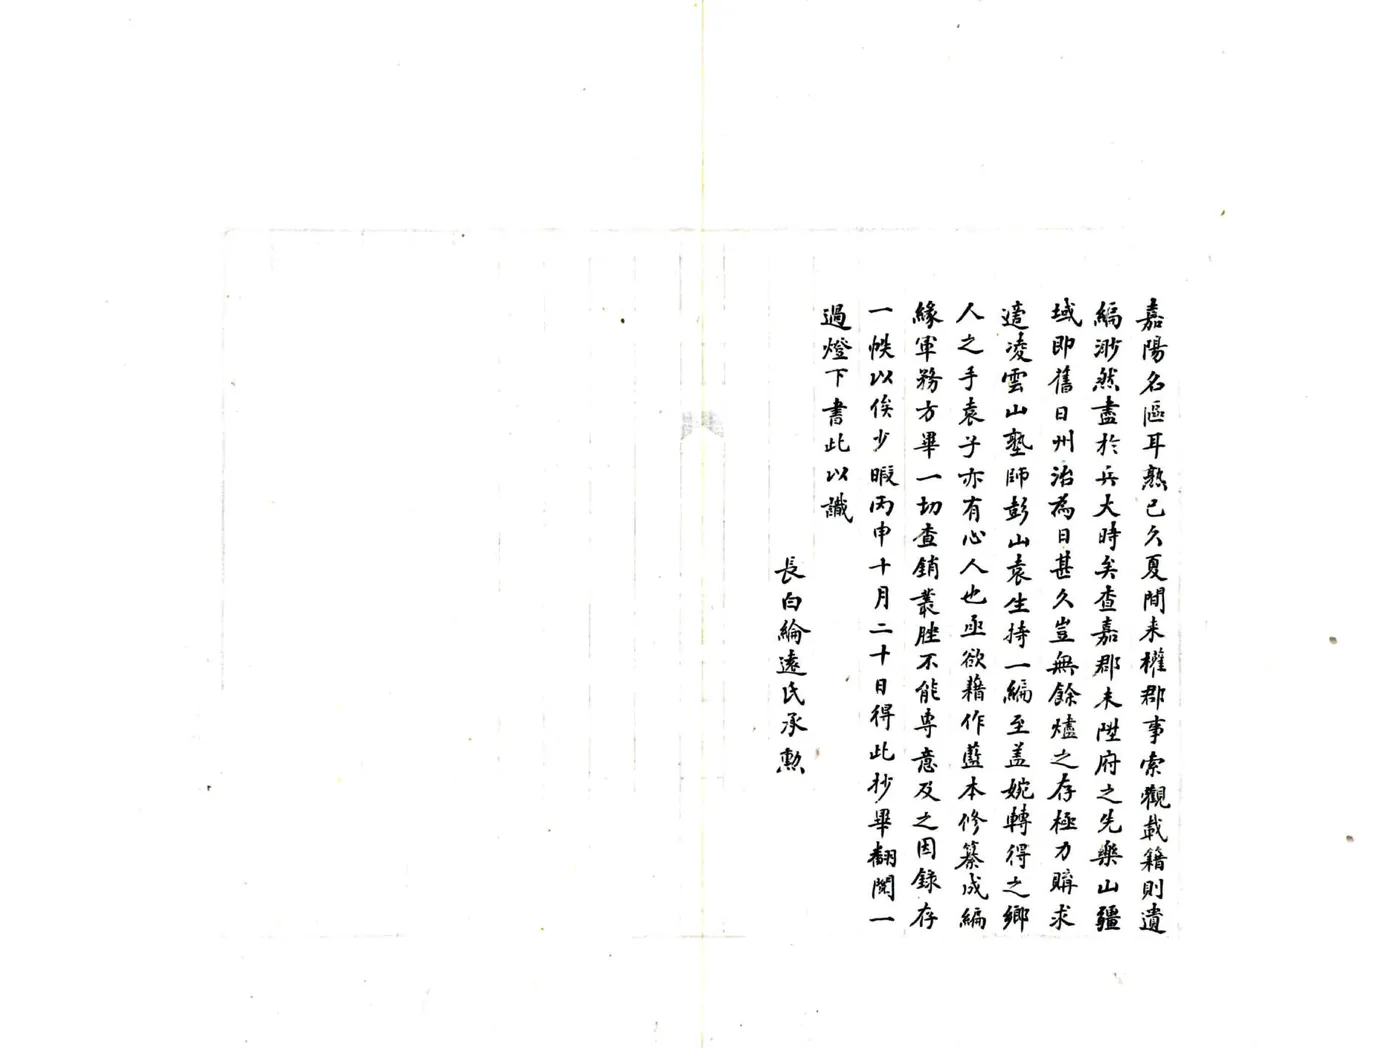 嘉陽名區耳熟已久夏間来權郡事索觀載籍則遺
編渺然盡於兵大時矣查嘉郡未陞府之先樂山疆
域即舊日州治為日甚久豈無餘燼之存極力購求
適凌雲山塾師彭山袁生持一編至盖婉轉得之鄉
人之手袁子亦有心人也亟欲藉作藍本修纂成編
緣軍務方畢一切查銷叢脞不能專意及之因錄存
一帙以俟少暇丙申十月二十日得此抄畢翻閱一
過燈下書此以識
長白綸遠氏承勲